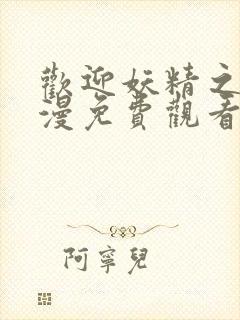 歡迎妖精之
漫免費觀看
阿寧兒